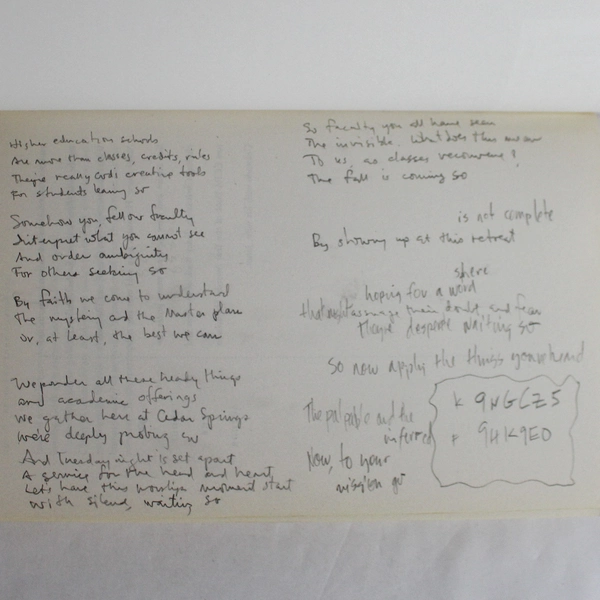 Higher education schools
Are more than classes, credits, rules
They're really God's creative tools
For students leaning so
Somehow you, fellow faculty
Interpret what you cannot see
And order ambiguity
For others seeking so
By faith we come to understand
The mystery and the Master plan
Or, at least, the best we can
We ponder all these heady things
and academic offerings
We gather here at Cedar Springs
We're deeply probing so
And Tuesday night is set apart
A service for the head and heart
Let's have this worship moment start
With silence, waiting so
So faculty you all have seen
The invisible. What does this mean
To us, as classes reconvene?
The fall is coming so
is not complete
By showing up at this retreat
hoping for a word
their doubt and fear
They're desperate waiting so
So now apply the things you've heard
The palpable and the
inferred
Now, to your
mission go
K 9NGCZ5
P 9HK9EO